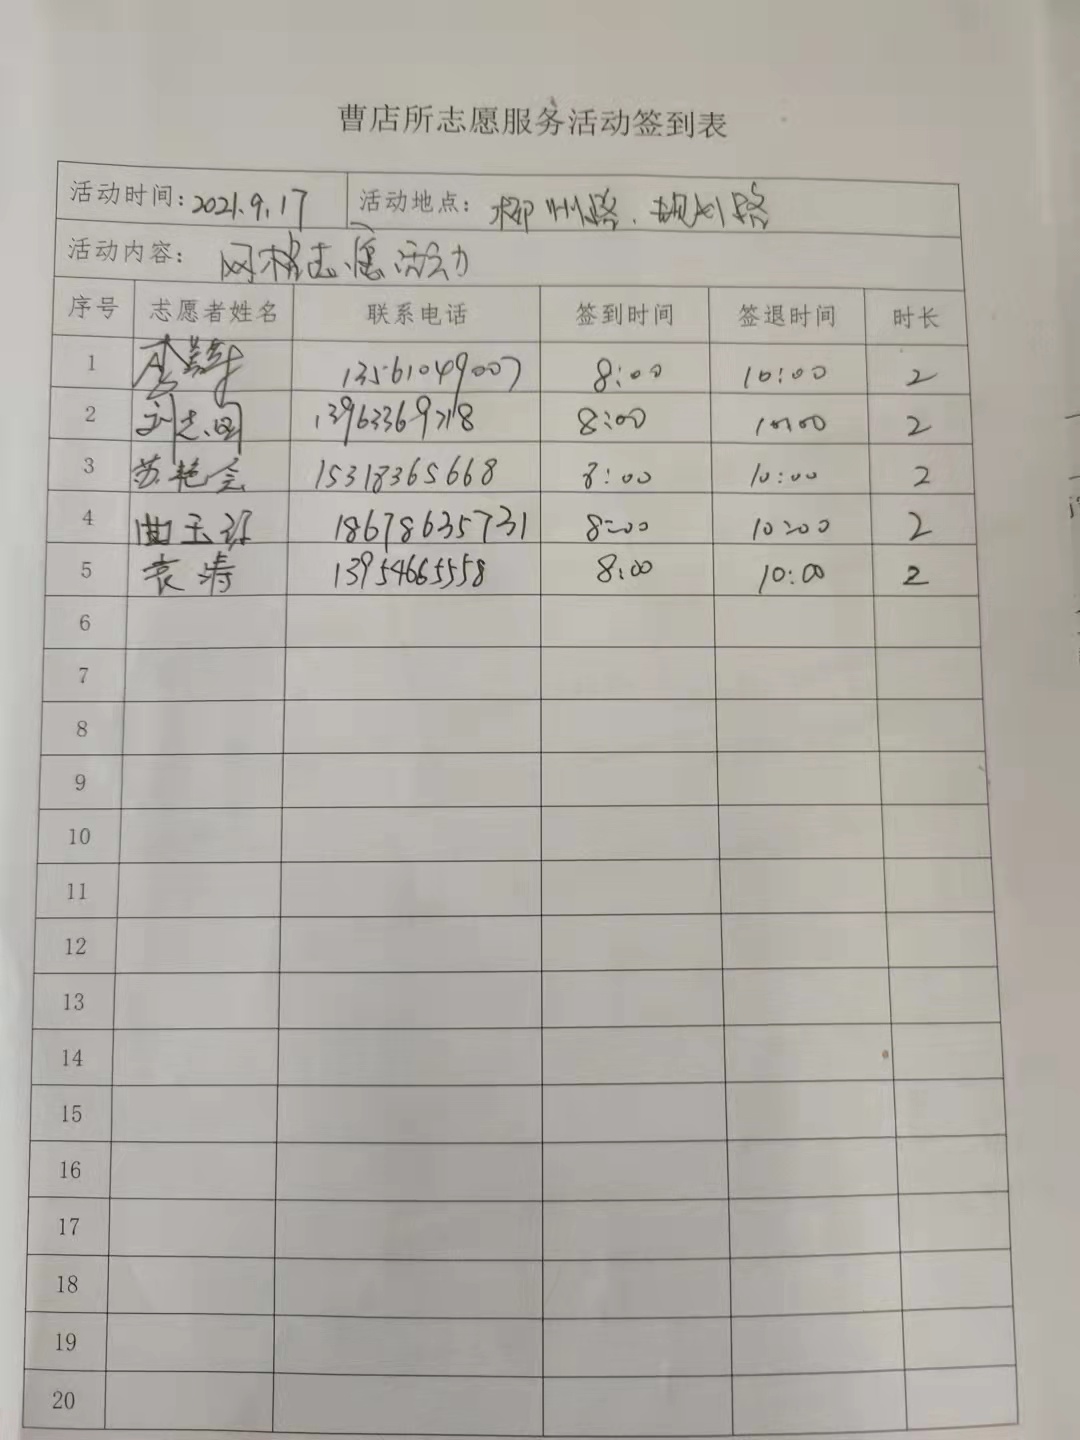 曹店所志愿服务活动签到表
活动时间: 2021.9.17 活动地点: 柳州路、规划路
活动内容: 网格志愿活动
序号 志愿者姓名 联系电话 签到时间 签退时间 时长
1 13561049007 8:00 10:00 2
2 刘志国 13963369718 8:00 10:00 2
3 苏艳会 15318365668 8:00 10:00 2
4 曲玉 18678635731 8:00 10:00 2
5 袁涛 13954665558 8:00 10:00 2
6
7
8
9
10
11
12
13
14
15
16
17
18
19
20